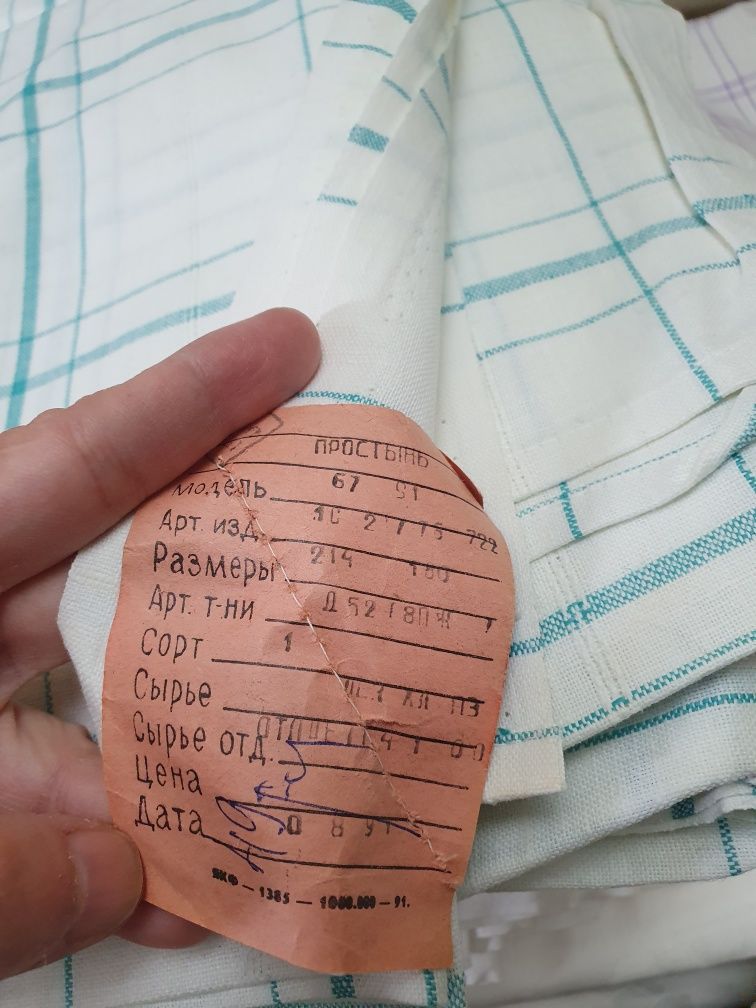 ПРОСТЫНЬ
Модель 67 91
Арт. изд. 1С 2 722
Размеры 214 180
Арт. т-ни
Сорт 1
Сырье ХЛ ПЭ
Сырье отд.
Цена
Дата 0 8 91
ЯКФ — 1385 — 1000.000 — 91.